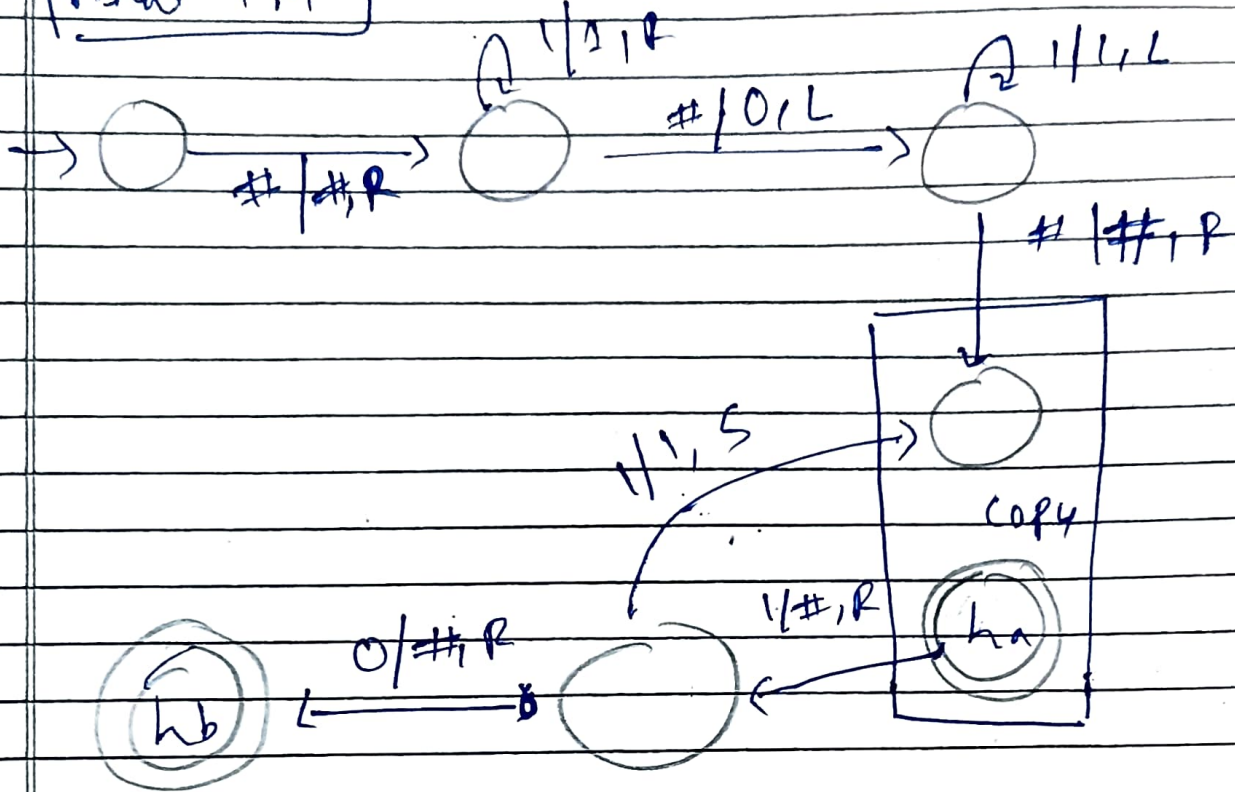 1/1, R
1/1, L
#/0, L
#/#, R
#/#, R
1/1, S
copy
1/#, R
ha
0/#, R
hb